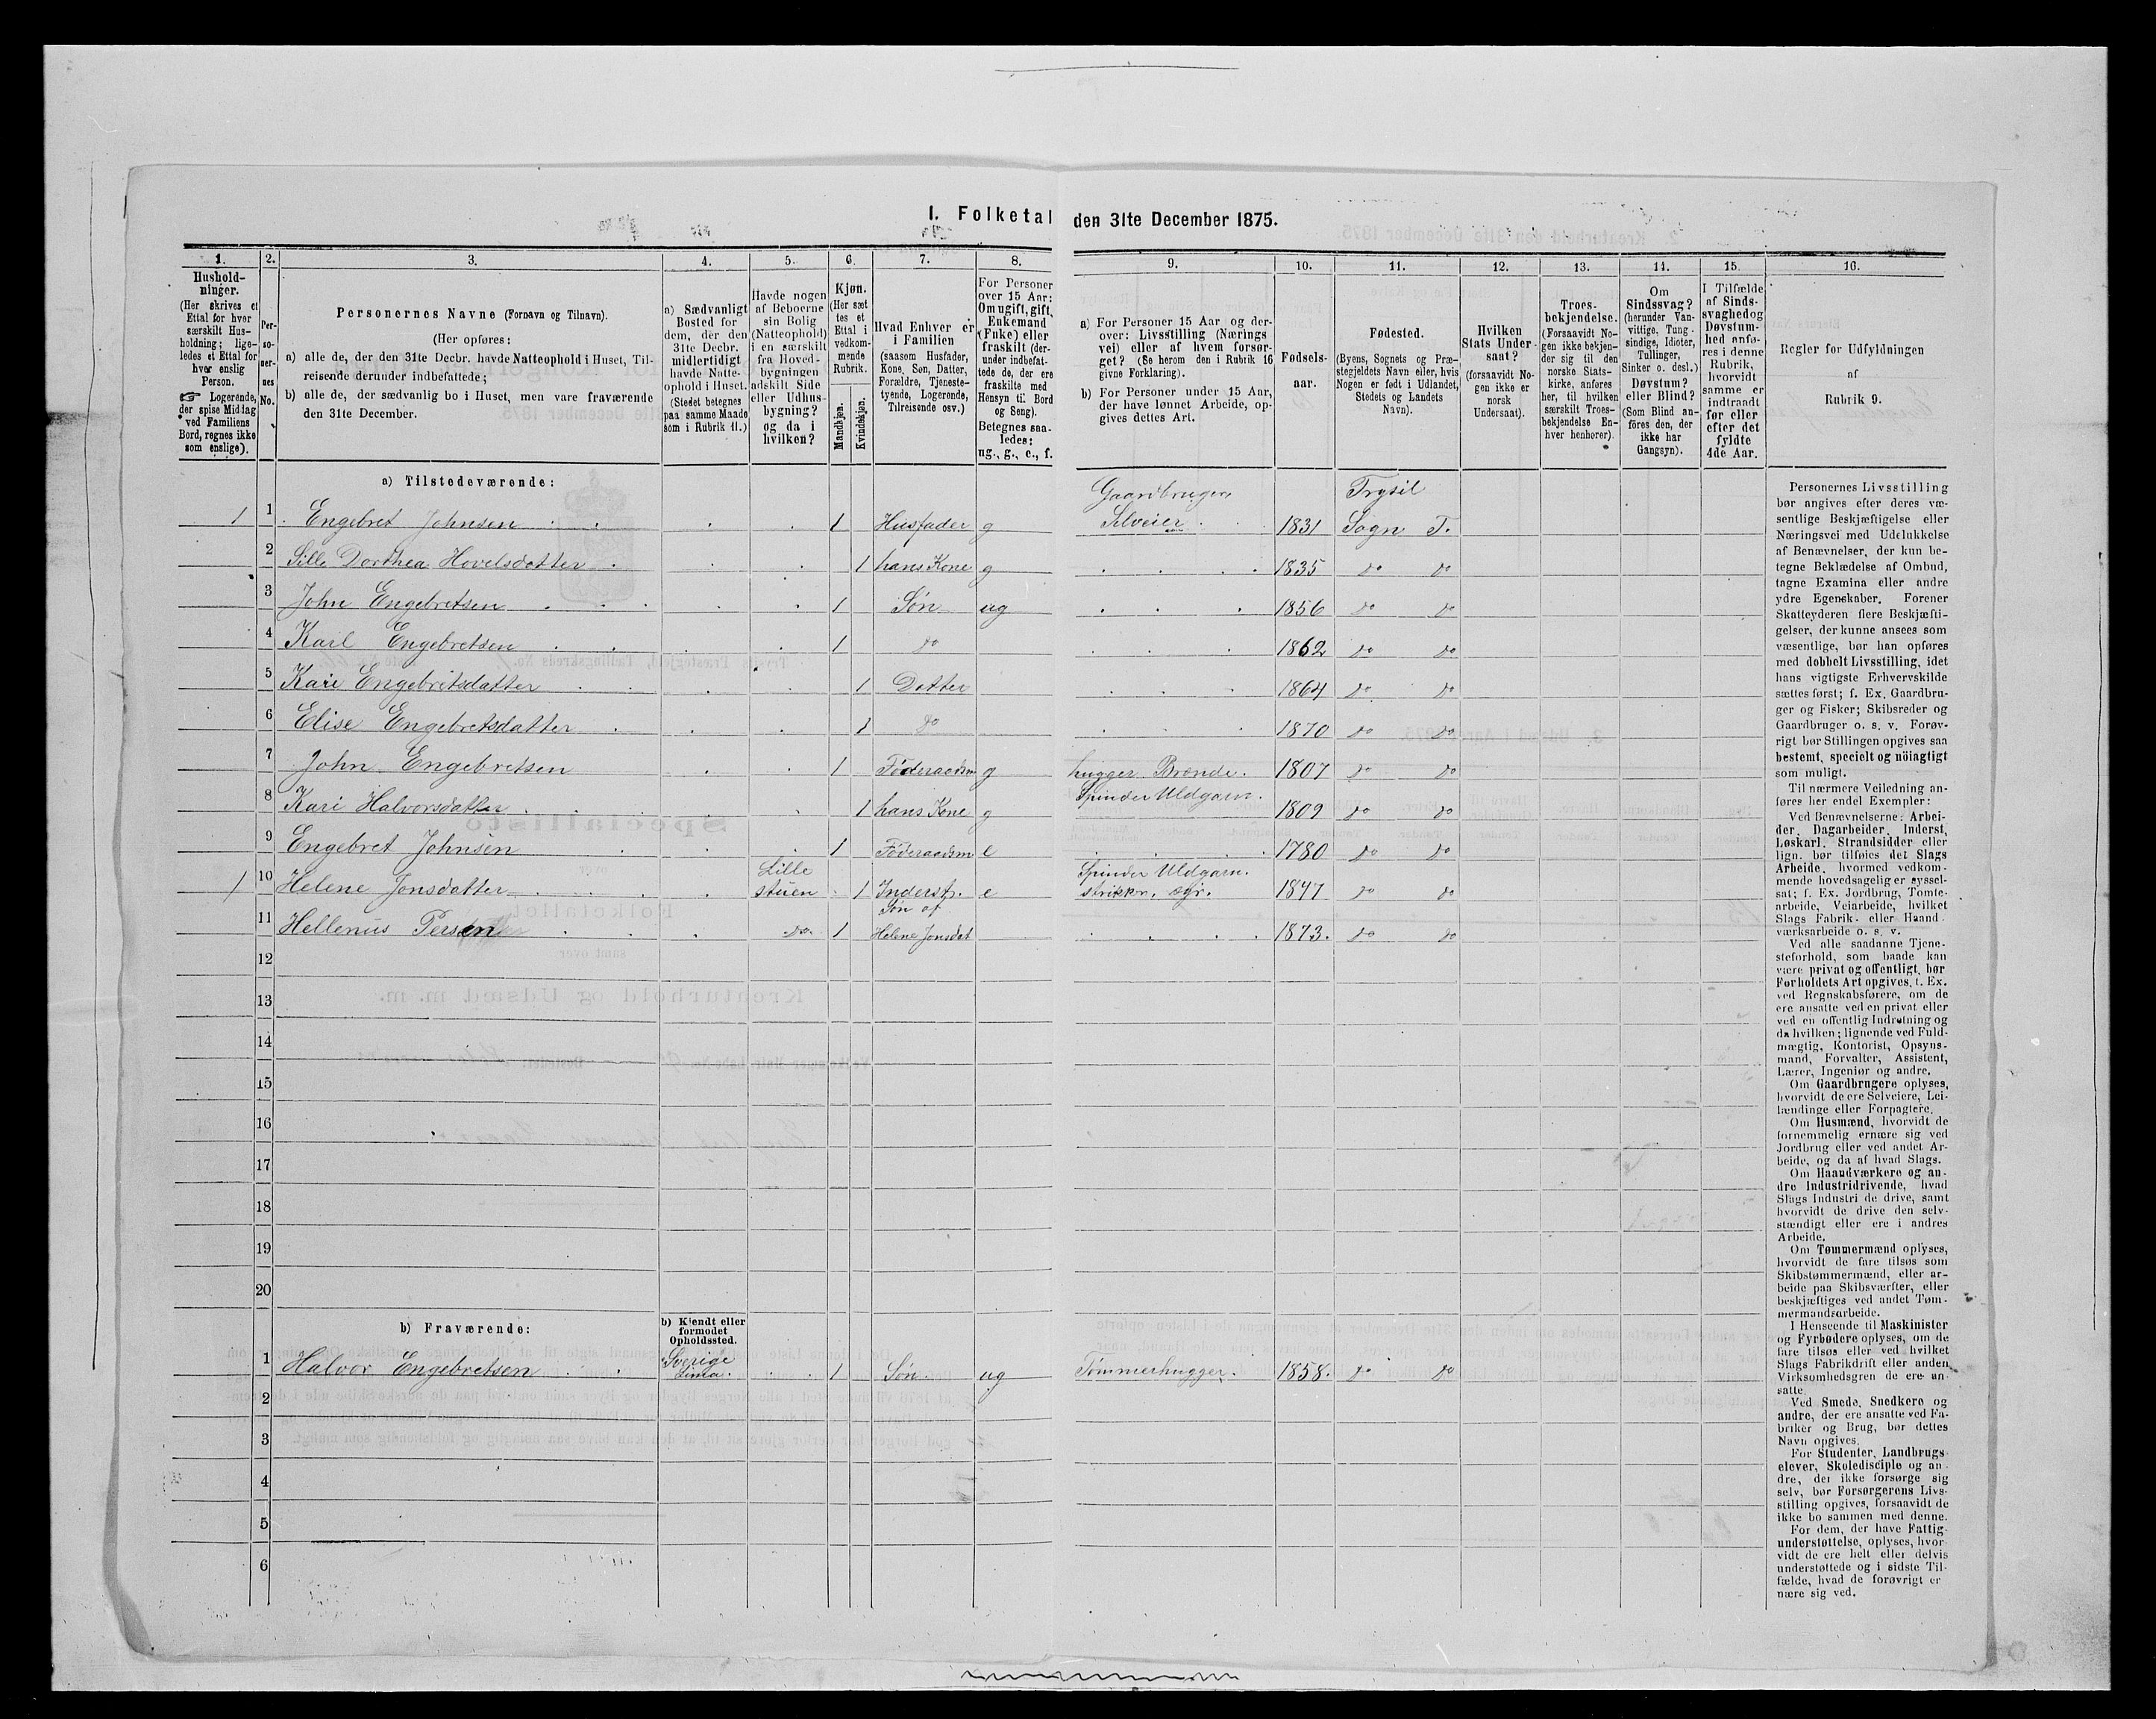 I. Folketal den 31te December 1875.
1. 2. 3. 4. 5. 6. 7. 8. 9. 10. 11. 12. 13. 14. 15. 16.
Hushold-
ninger.
(Her skrives et
Ettal for hver
særskilt Hus-
holdning; lige-
ledes et Ettal for
hver enslig
Person.
☞ Logerende,
der spise Middag
ved Familiens
Bord, regnes ikke
som enslige).
Per-
so-
ner-
nes
No.
Personernes Navne (Fornavn og Tilnavn).
(Her opføres:
a) alle de, der den 31te Decbr. havde Natteophold i Huset, Til-
reisende derunder indbefattede;
b) alle de, der sædvanlig bo i Huset, men vare fraværende
den 31te December.
a) Sædvanligt
Bosted for
dem, der den
31te Decbr.
midlertidigt
havde Natte-
ophold i Huset.
(Stedet betegnes
paa samme Maade
som i Rubrik 11.)
Havde nogen
af Beboerne
sin Bolig
(Natteophold)
i en særskilt
fra Hoved-
bygningen
adskilt Side
eller Udhus-
bygning?
og da i
hvilken?
Kjøn.
(Her sæt
tes et
Ettal i
vedkom-
mende
Rubrik.
Mandkjøn.
Kvindekjøn.
Hvad Enhver er
i Familien
(saasom Husfader,
Kone, Søn, Datter,
Forældre, Tjeneste-
tyende, Logerende,
Tilreisende osv.)
For Personer
over 15 Aar:
Om ugift, gift,
Enkemand
(Enke) eller
fraskilt (der-
under indbefat-
tede de, der ere
fraskilte med
Hensyn til Bord
og Seng).
Betegnes saa-
ledes:
ug., g., e., f.
a) For Personer 15 Aar og der-
over: Livsstilling (Nærings
vei) eller af hvem forsør-
get? (Se herom den i Rubrik 16
givne Forklaring).
b) For Personer under 15 Aar,
der have lønnet Arbeide, op-
gives dettes Art.
Fødsels-
aar.
Fødested.
(Byens, Sognets og Præ-
stegjeldets Navn eller, hvis
Nogen er født i Udlandet,
Stedets og Landets
Navn).
Hvilken
Stats Under-
saat?
(forsaavidt No-
gen ikke er
norsk
Undersaat).
Troes-
bekjendelse.
(Forsaavidt No-
gen ikke bekjen-
der sig til den
norske Stats-
kirke, anføres
her, til hvilken
særskilt Troes-
bekjendelse En-
hver henhører).
Om
Sindssvag?
(herunder Van-
vittige, Tung-
sindige, Idioter,
Tullinger,
Sinker o. desl.)
Døvstum?
eller Blind?
(Som Blind an-
føres den, der
ikke har
Gangsyn).
I Tilfælde
af Sinds-
svaghed og
Døvstum-
hed anfø-
res i denne
Rubrik,
hvorvidt
samme er
indtraadt
før eller
efter det
fyldte
4de Aar.
Regler for Udfyldningen
af
Rubrik 9.
a) Tilstedeværende:
1 1 Engebret Johnsen 1 Husfader g Gaardbruger Selveier 1831 Trysil Sogn T.
2 Sille Dorthea Hovelsdatter 1 hans Kone g 1835 do do
3 John Engebretsen 1 Søn ug 1856 do do
4 Karl Engebretsen 1 do 1862 do do
5 Kari Engebretsdatter 1 Datter 1864 do do
6 Elise Engebretsdatter 1 do 1870 do do
7 John Engebretsen 1 Føderaadsm g hugger Brænde. 1807 do do
8 Kari Halvorsdatter 1 hans Kone g Spinder Uldgarn. 1809 do do
9 Engebret Johnsen 1 Føderaadsm e 1780 do do
1 10 Helene Jonsdatter Lille stuen 1 Inderst. e Spinder Uldgarn. strikker, 1847 do do
11 Hellenius Persen do 1 Søn af Helene Jonsdat 1873. do do
12
13
14
15
16
17
18
19
20
b) Fraværende:
b) Kjendt eller
formodet
Opholdssted.
1 Halvor Engebretsen Sverige Lima. 1 Søn ug Tømmerhugger. 1858. do do
2
3
4
5
6
Personernes Livsstilling
bør angives efter deres væ-
sentlige Beskjæftigelse eller
Næringsvei med Udelukkelse
af Benævnelser, der kun be-
tegne Beklædelse af Ombud,
tagne Examina eller andre
ydre Egenskaber. Forener
Skatteyderen flere Beskjæfti-
gelser, der kunne ansees som
væsentlige, bør han opføres
med dobbelt Livsstilling, idet
hans vigtigste Erhvervskilde
sættes først; f. Ex. Gaardbru-
ger og Fisker; Skibsreder og
Gaardbruger o. s. v. Forøv-
rigt bør Stillingen opgives saa
bestemt, specielt og nöiagtigt
som muligt.
Til nærmere Veiledning an-
føres her endel Exempler:
Ved Benævnelserne: Arbei-
der, Dagarbeider, Inderst,
Løskarl, Strandsidder eller
lign. bør tilføies det Slags
Arbeide, hvormed vedkom-
mende hovedsagelig er syssel-
sat; f. Ex. Jordbrug, Tomte-
arbeide, Veiarbeide, hvilket
Slags Fabrik- eller Haand-
værksarbeide o. s. v.
Ved alle saadanne Tjene-
steforhold, som baade kan
være privat og offentligt, bør
Forholdets Art opgives, f. Ex.
ved Regnskabsførere, om de
ere ansatte ved en privat eller
ved en offentlig Indretning og
da hvilken; lignende ved Fuld-
mægtig, Kontorist, Opsyns-
mand, Forvalter, Assistent,
Lærer, Ingeniør og andre.
Om Gaardbrugere oplyses,
hvorvidt de ere Selveiere, Lei-
lændinge eller Forpagtere.
Om Husmænd, hvorvidt de
fornemmelig ernære sig ved
Jordbrug eller ved andet Ar-
beide, og da af hvad Slags.
Om Haandværkere og an-
dre Industridrivende, hvad
Slags Industri de drive, samt
hvorvidt de drive den selv-
stændigt eller ere i andres
Arbeide.
Om Tømmermænd oplyses,
hvorvidt de fare tilsøs som
Skibstømmermænd, eller ar-
beide paa Skibsværfter, eller
beskjæftiges ved andet Tøm-
mermandsarbeide.
I Henseende til Maskinister
og Fyrbødere oplyses, om de
fare tilsøs eller ved hvilket
Slags Fabrikdrift eller anden
Virksomhedsgren de ere an-
satte.
Ved Smede, Snedkere og
andre, der ere ansatte ved Fa-
briker og Brug, bør dettes
Navn opgives.
For Studenter, Landbrugs-
elever, Skoledisciple og an-
dre, der ikke forsørge sig
selv, bør Forsørgerens Livs-
stilling opgives, forsaavidt de
ikke bo sammen med denne.
For dem, der have Fattig-
understøttelse, oplyses, hvor-
vidt de ere helt eller delvis
understøttede og i sidste Til-
fælde, hvad de forøvrigt er
nære sig ved.